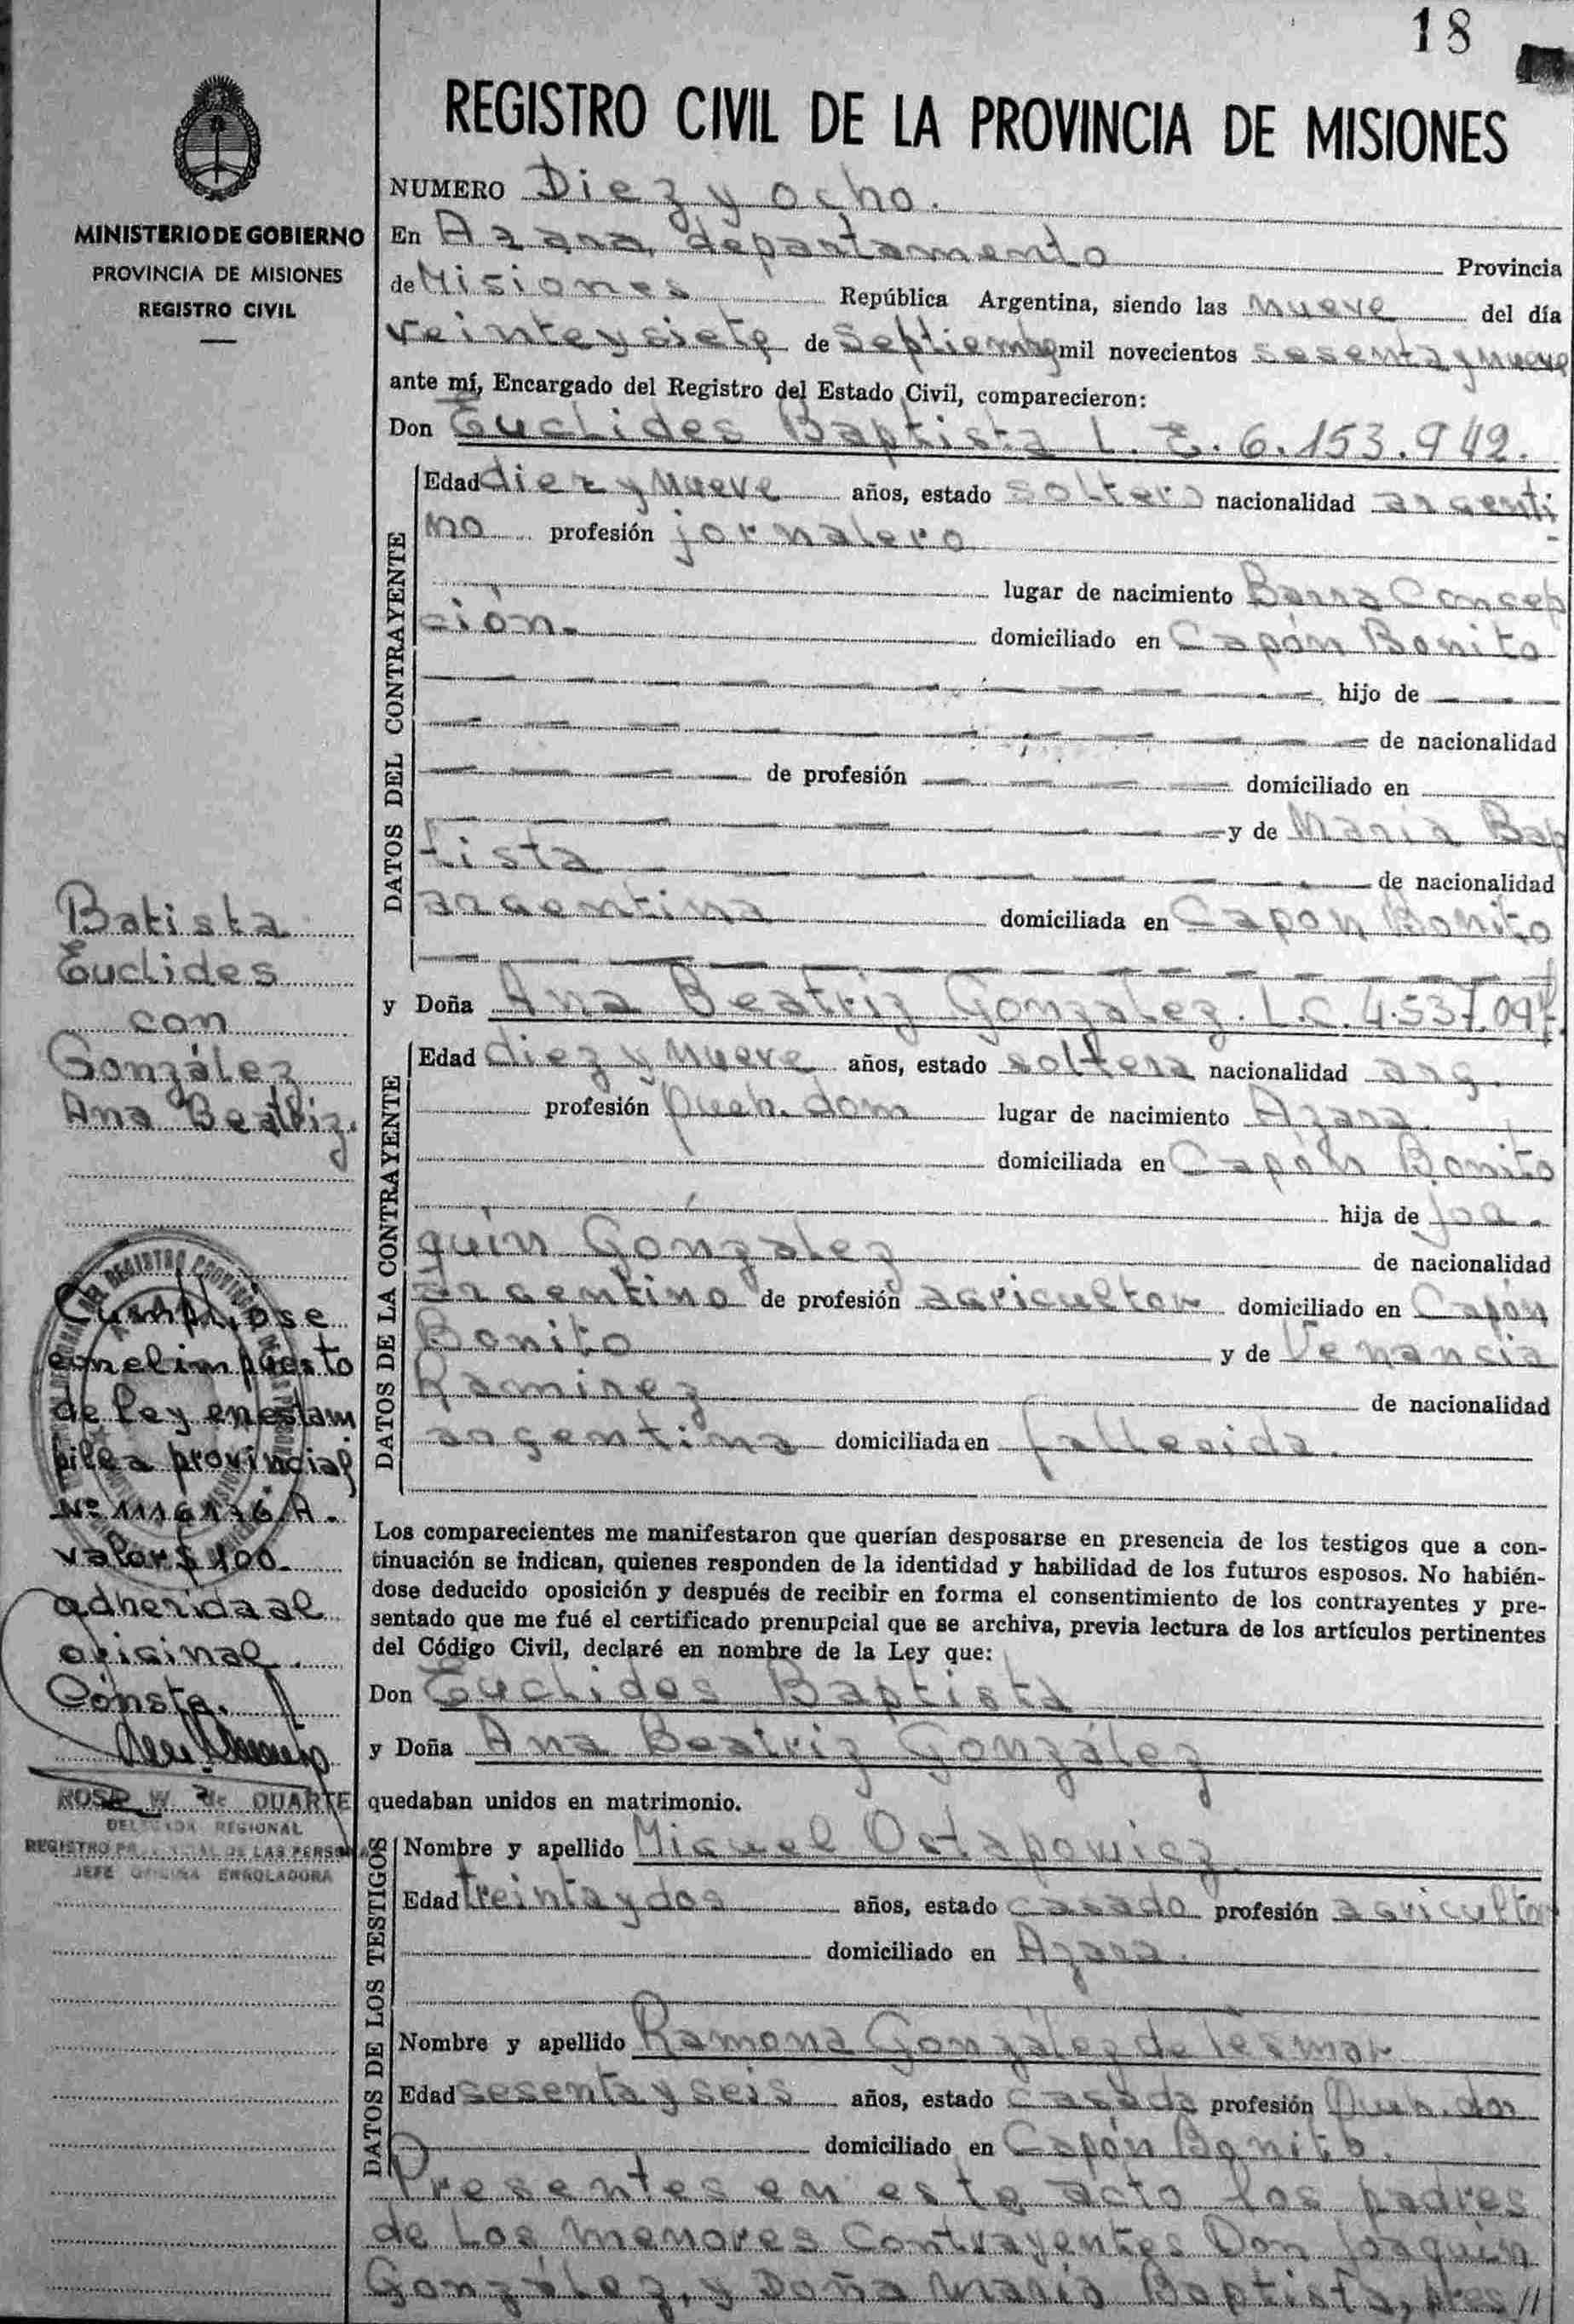 18
REGISTRO CIVIL DE LA PROVINCIA DE MISIONES
MINISTERIO DE GOBIERNO
PROVINCIA DE MISIONES
REGISTRO CIVIL
NUMERO Diez y ocho.
En Azara, departamento Provincia
de Misiones República Argentina, siendo las nueve del día
veinte y siete de Septiembre mil novecientos sesenta y nueve
ante mí, Encargado del Registro del Estado Civil, comparecieron:
Don Euclides Baptista L. E. 6.153.942.
DATOS DEL CONTRAYENTE
Edad diez y nueve años, estado soltero nacionalidad argenti
no profesión jornalero
lugar de nacimiento Barra Concep
ción. domiciliado en Capón Bonito
hijo de
de nacionalidad
de profesión domiciliado en
y de Maria Bap
tista de nacionalidad
argentina domiciliada en Capon Bonito
y Doña Ana Beatriz Gonzalez. L.C. 4.537.09
DATOS DE LA CONTRAYENTE
Edad diez y nueve años, estado soltera nacionalidad arg.
profesión dom lugar de nacimiento Azara.
domiciliada en Capón Bonito
hija de Joa-
quin González de nacionalidad
argentino de profesión agricultor domiciliado en Capón
Bonito y de Venancia
Ramirez de nacionalidad
argentina domiciliada en fallecida.
Los comparecientes me manifestaron que querían desposarse en presencia de los testigos que a con-
tinuación se indican, quienes responden de la identidad y habilidad de los futuros esposos. No habién-
dose deducido oposición y después de recibir en forma el consentimiento de los contrayentes y pre-
sentado que me fué el certificado prenupcial que se archiva, previa lectura de los artículos pertinentes
del Código Civil, declaré en nombre de la Ley que:
Don Euclides Baptista
y Doña Ana Beatriz González
quedaban unidos en matrimonio.
DATOS DE LOS TESTIGOS
Nombre y apellido Miguel Ostapowicz
Edad treinta y dos años, estado casado profesión agricultor
domiciliado en Azara.
Nombre y apellido Ramona González de Tesmar
Edad sesenta y seis años, estado casada profesión
domiciliado en Capón Bonito.
Presentes en este acto los padres
de los menores Contrayentes Don Joaquin
González, y Doña Maria Baptista, pres //
Batista
Euclides
con
González
Ana Beatriz.
Cumpliose
con el impuesto
de ley en estam
pilla provincial
Nº 1116176.A.
valor $ 100.
adherida al
original.
Conste.
ROSA W. de DUARTE
DELEGADA REGIONAL
REGISTRO PROVINCIAL DE LAS PERSONAS
JEFE OFICINA ENROLADORA